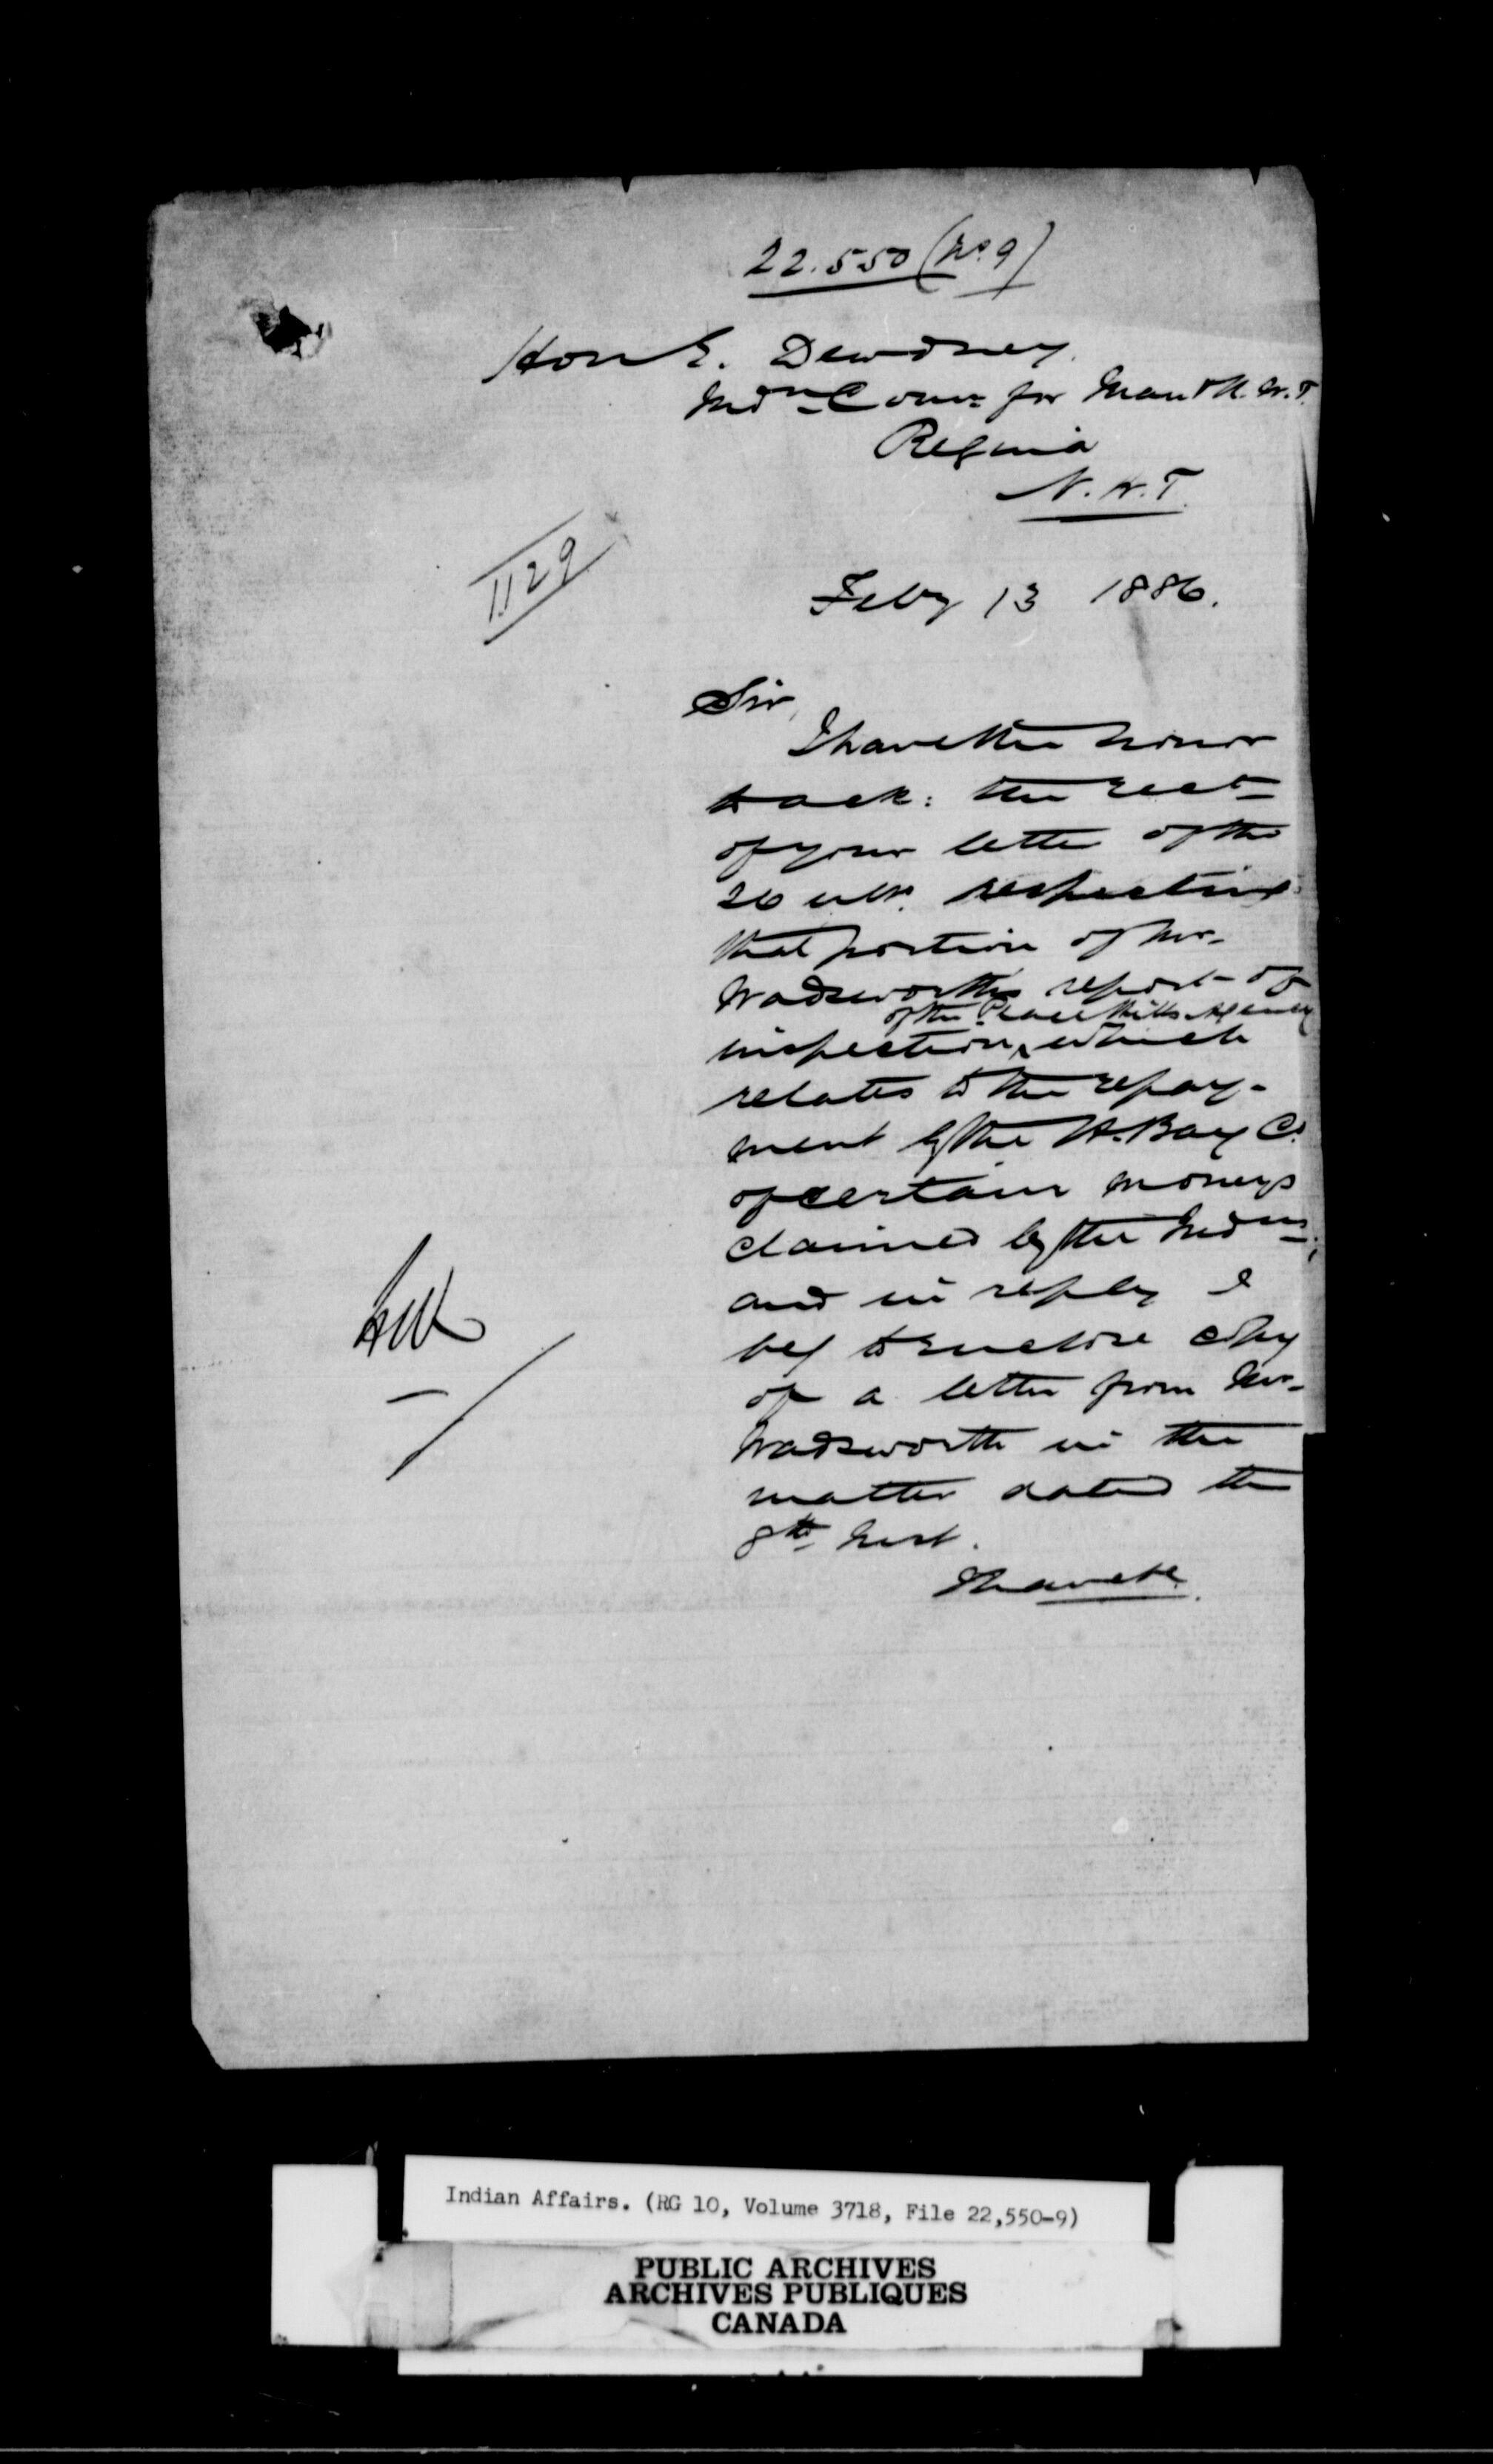 22.550 (No. 9)
Hon E. Dewdney.
Indn Comr for Man & N.W.T.
Regina
N.W.T.
1129
Feby 13 1886.
Sir,
I have the honor
to ack: the rect
of your letter of the
26 ulto. respecting
that portion of Mr.
Wadsworth's report of
of the Peace Hills Agency
inspection, which
relates to the repay-
ment by the H. Bay Co.
of certain moneys
claimed by the Indns;
and in reply I
beg to enclose copy
of a letter from Mr.
Wadsworth in the
matter dated the
8th Inst.
I have &c.
Indian Affairs. (RG 10, Volume 3718, File 22,550-9)
PUBLIC ARCHIVES
ARCHIVES PUBLIQUES
CANADA